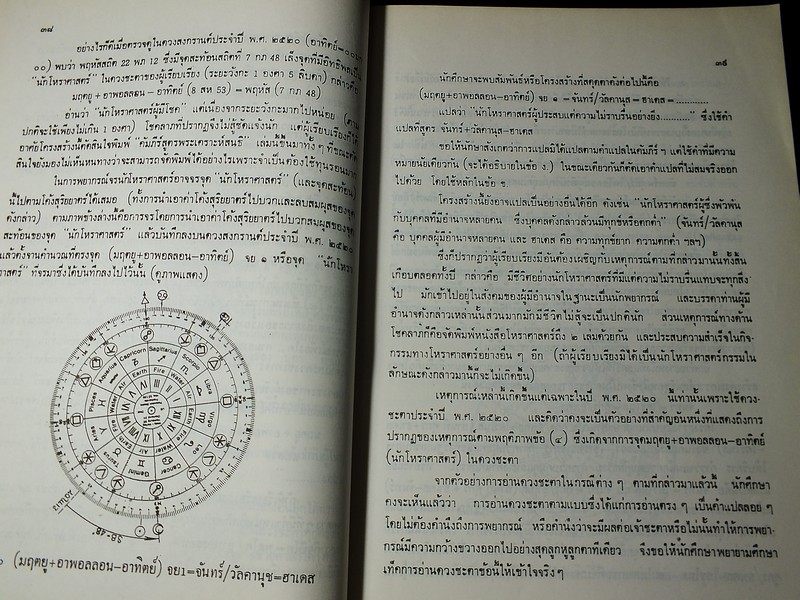 ๓๘
อย่างไรก็ดีเมื่อตรวจดูในดวงสงกรานต์ประจำปี พ.ศ. ๒๕๒๐ (อาทิตย์=๐๐
๐๐) พบว่า พฤหัสสถิต 22 พภ 12 ซึ่งมีจุดสะท้อนสถิตที่ 7 กภ 48 เล็งจุดที่มีอิทธิพลเป็น
"นักโหราศาสตร์" ในดวงชะตาของผู้เรียบเรียง (ระยะวังกะ 1 องศา 5 ลิบดา) กล่าวคือ
มฤตยู + อาพอลลอน – อาทิตย์ (8 สห 53) = พฤหัส (7 กภ 48)
อ่านว่า "นักโหราศาสตร์ผู้มีโชค" แต่เนื่องจากระยะวังกะมากไปหน่อย (ตาม
ปกติจะใช้เพียงไม่เกิน 1 องศา) โชคลาภที่ปรากฏจึงไม่สู้ชัดแจ้งนัก แต่ผู้เรียบเรียงก็ได้
อาศัยโครงสร้างนี้ตัดสินใจพิมพ์ "คัมภีร์สูตรพระเคราะห์สนธิ" เล่มนี้ขึ้นมาทั้ง ๆ ที่ขณะตัด
สินใจยังมองไม่เห็นหนทางว่าจะสามารถจัดพิมพ์ได้อย่างไรเพราะจำเป็นต้องใช้ทุนรอนมาก
ในการพยากรณ์จรนักโหราศาสตร์อาจจรจุด "นักโหราศาสตร์" (และจุดสะท้อน)
นี้ไปตามโค้งสุริยยาตร์ได้เสมอ (ทั้งการนำเอาค่าโค้งสุริยยาตร์ไปบวกและลบสมผุสของจุด
ดังกล่าว) ตามภาพข้างล่างนี้คือการจรโดยการนำเอาค่าโค้งสุริยยาตร์ไปบวกสมผุสของจุด
สะท้อนของจุด "นักโหราศาสตร์" แล้วบันทึกลงบนดวงสงกรานต์ประจำปี พ.ศ. ๒๕๒๐
แล้วตั้งจานคำนวณที่ตรงจุด (มฤตยู+อาพอลลอน–อาทิตย์) จย ๑ หรือจุด "นักโหรา
ศาสตร์" ที่จรมาซึ่งได้บันทึกลงไว้วันนี้ (ดูภาพแสดง)
Capricorn Sagittarius Scorpio Libra Virgo Leo Cancer Gemini Taurus Aries Pisces Aquarius
Earth Fire Water Air Earth Fire Water Air Earth Fire Water Air
(มฤตยู+อาพอลลอน–อาทิตย์) จย1=จันทร์/วัลคานุช=ฮาเดส
๓๙
นักศึกษาจะพบสัมพันธ์หรือโครงสร้างที่สดุดตาดังต่อไปนี้คือ
(มฤตยู+อาพอลลอน–อาทิตย์) จย 1 = จันทร์/วัลคานุส = ฮาเดส = ............
แปลว่า "นักโหราศาสตร์ผู้ประสบแต่ความไม่ราบรื่นอย่างยิ่ง.........." ซึ่งใช้คำ
แปลที่สูตร จันทร์+วัลคานุส–ฮาเดส
ขอให้นักศึกษาสังเกตว่าการแปลมิได้แปลตามคำแปลในคัมภีร์ ฯ แต่ใช้คำที่มีความ
หมายนัยเดียวกัน (จะได้อธิบายในข้อ ง.) ในขณะเดียวกันก็ตัดเอาคำแปลที่ไม่สมจริงออก
ไปด้วย โดยใช้หลักในข้อ ข.
โครงสร้างนี้ยังอาจแปลเป็นอย่างอื่นได้อีก ดังเช่น "นักโหราศาสตร์ผู้ซึ่งพัวพัน
กับบุคคลที่มีอำนาจหลายคน ซึ่งบุคคลดังกล่าวล้วนมีทุกข์หรือตกต่ำ" (จันทร์/วัลคานุส
คือ บุคคลผู้มีอำนาจหลายคน และ ฮาเดส คือ ความทุกข์ยาก ความตกต่ำ ฯลฯ)
ซึ่งก็ปรากฏว่าผู้เรียบเรียงมีอันต้องเผชิญกับเหตุการณ์ตามที่กล่าวมานั้นทั้งสิ้น
เกือบตลอดทั้งปี กล่าวคือ มีชีวิตอย่างนักโหราศาสตร์ที่มีแต่ความไม่ราบรื่นแทบจะทุกสิ่ง
ไป มักเข้าไปอยู่ในสังคมของผู้มีอำนาจในฐานะเป็นนักพยากรณ์ และบรรดาท่านผู้มี
อำนาจดังกล่าวเหล่านั้นส่วนมากมักมีชีวิตไม่สู้จะเป็นปกตินัก ส่วนเหตุการณ์ทางด้าน
โชคลาภก็คือจัดพิมพ์หนังสือโหราศาสตร์ถึง ๒ เล่มด้วยกัน และประสบความสำเร็จในกิจ-
กรรมทางโหราศาสตร์อย่างอื่น ๆ อีก (ถ้าผู้เรียบเรียงมิได้เป็นนักโหราศาสตร์กรรมใน
ลักษณะดังกล่าวมานี้ก็จะไม่เกิดขึ้น)
เหตุการณ์เหล่านี้เกิดขึ้นแต่เฉพาะในปี พ.ศ. ๒๕๒๐ นี้เท่านั้นเพราะใช้ดวง-
ชะตาประจำปี พ.ศ. ๒๕๒๐ และคิดว่าคงจะเป็นตัวอย่างที่สำคัญอันหนึ่งที่แสดงถึงการ
ปรากฏของเหตุการณ์ตามพฤติภาพข้อ (๔) ซึ่งเกิดจากการจุดมฤตยู+อาพอลลอน–อาทิตย์
(นักโหราศาสตร์) ในดวงชะตา
จากตัวอย่างการอ่านดวงชะตาในกรณีต่าง ๆ ตามที่กล่าวมาแล้วนี้ นักศึกษา
คงจะเห็นแล้วว่า การอ่านดวงชะตาตามแบบซึ่งได้แก่การอ่านตรง ๆ เป็นคำแปลลอย ๆ
โดยไม่ต้องคำนึงถึงการพยากรณ์ หรือคำนึงว่าจะมีผลต่อเจ้าชะตาหรือไม่นั้นทำให้การพยา-
กรณ์มีความกว้างขวางออกไปอย่างสุดลูกหูลูกตาทีเดียว จึงขอให้นักศึกษาพยายามศึกษา
เทคการอ่านดวงชะตาข้อนี้ให้เข้าใจจริง ๆ